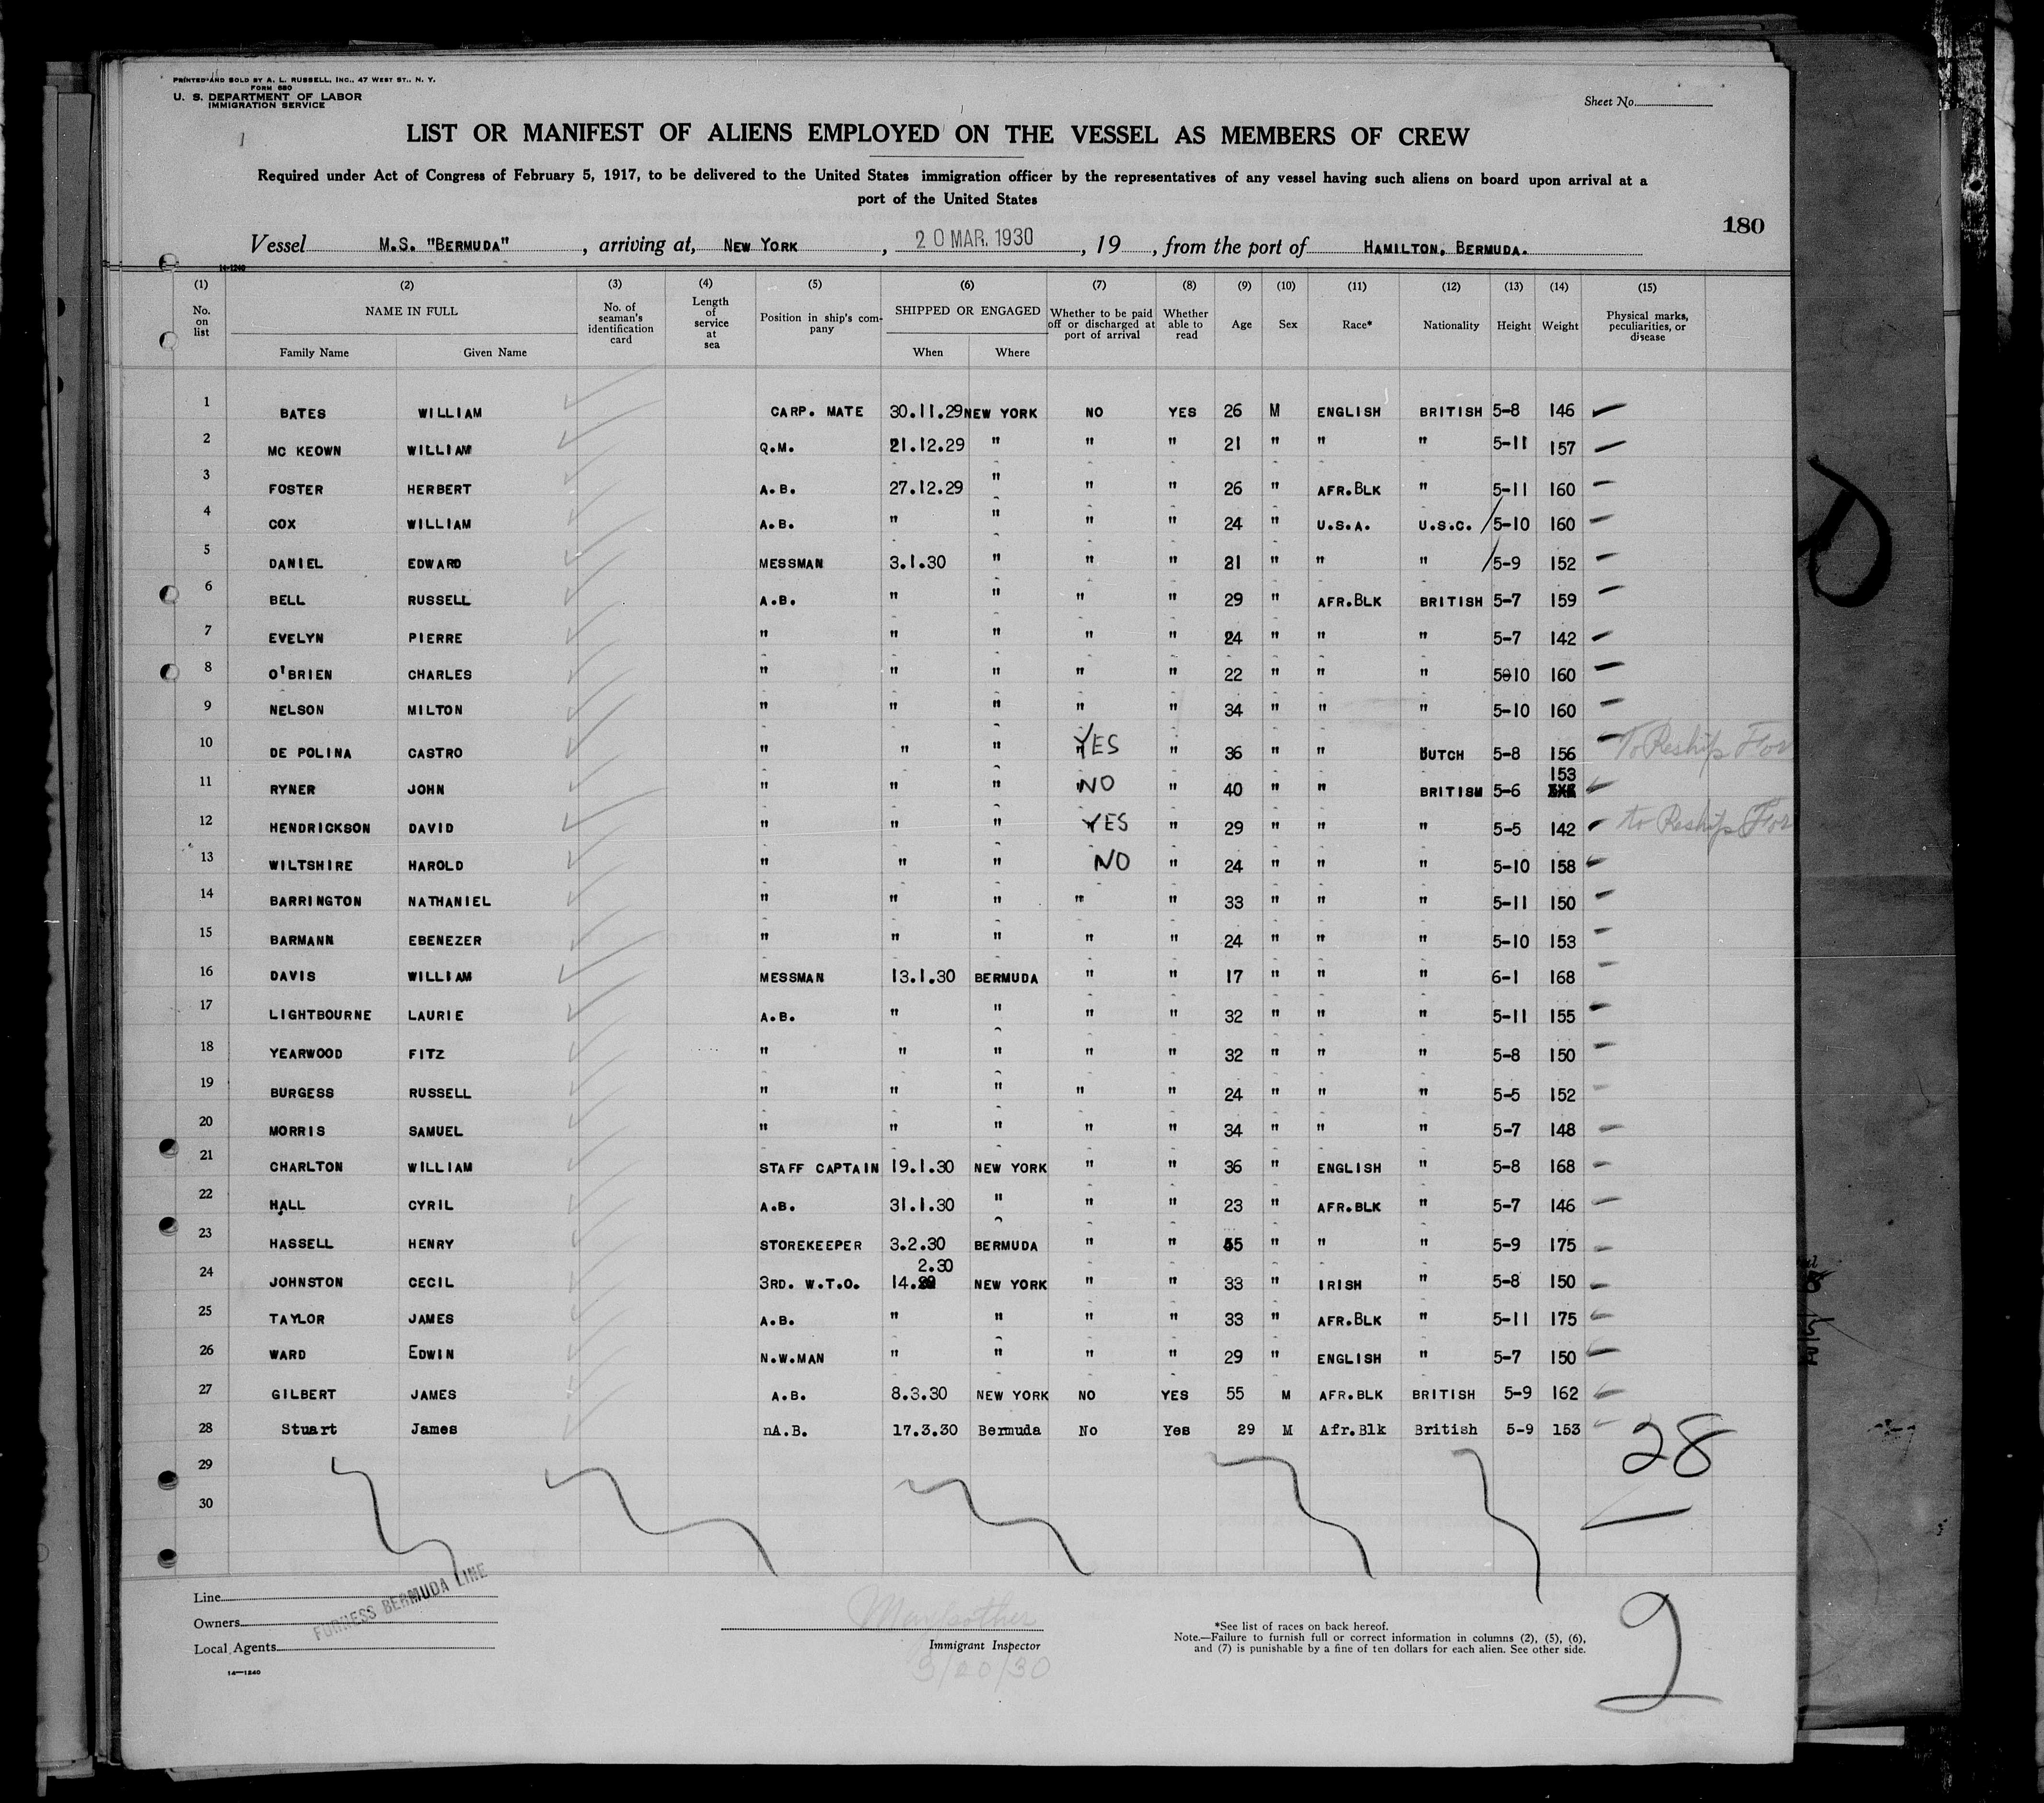 PRINTED AND SOLD BY A. L. RUSSELL, INC., 47 WEST ST., N. Y.
FORM 680
U. S. DEPARTMENT OF LABOR
IMMIGRATION SERVICE
Sheet No.
LIST OR MANIFEST OF ALIENS EMPLOYED ON THE VESSEL AS MEMBERS OF CREW
Required under Act of Congress of February 5, 1917, to be delivered to the United States immigration officer by the representatives of any vessel having such aliens on board upon arrival at a
port of the United States
180
Vessel M.S. "BERMUDA", arriving at, NEW YORK, 20 MAR. 1930, 19, from the port of HAMILTON, BERMUDA.
14-1240
(1) (2) (3) (4) (5) (6) (7) (8) (9) (10) (11) (12) (13) (14) (15)
No. on list NAME IN FULL Family Name Given Name No. of seaman's identification card Length of service at sea Position in ship's company SHIPPED OR ENGAGED When Where Whether to be paid off or discharged at port of arrival Whether able to read Age Sex Race* Nationality Height Weight Physical marks, peculiarities, or disease
1 BATES WILLIAM CARP. MATE 30.11.29 NEW YORK NO YES 26 M ENGLISH BRITISH 5-8 146
2 MC KEOWN WILLIAM Q.M. 21.12.29 " " " 21 " " " 5-11 157
3 FOSTER HERBERT A.B. 27.12.29 " " " 26 " AFR.BLK " 5-11 160
4 COX WILLIAM A.B. " " " " 24 " U.S.A. U.S.C. 5-10 160
5 DANIEL EDWARD MESSMAN 3.1.30 " " " 21 " " " 5-9 152
6 BELL RUSSELL A.B. " " " " 29 " AFR.BLK BRITISH 5-7 159
7 EVELYN PIERRE " " " " " 24 " " " 5-7 142
8 O'BRIEN CHARLES " " " " " 22 " " " 5-10 160
9 NELSON MILTON " " " " " 34 " " " 5-10 160
10 DE POLINA CASTRO " " " YES " 36 " " DUTCH 5-8 156 To Reship For
11 RYNER JOHN " " " NO " 40 " " BRITISH 5-6 153
12 HENDRICKSON DAVID " " " YES " 29 " " " 5-5 142 to Reship For
13 WILTSHIRE HAROLD " " " NO " 24 " " " 5-10 158
14 BARRINGTON NATHANIEL " " " " " 33 " " " 5-11 150
15 BARMANN EBENEZER " " " " " 24 " " " 5-10 153
16 DAVIS WILLIAM MESSMAN 13.1.30 BERMUDA " " 17 " " " 6-1 168
17 LIGHTBOURNE LAURIE A.B. " " " " 32 " " " 5-11 155
18 YEARWOOD FITZ " " " " " 32 " " " 5-8 150
19 BURGESS RUSSELL " " " " " 24 " " " 5-5 152
20 MORRIS SAMUEL " " " " " 34 " " " 5-7 148
21 CHARLTON WILLIAM STAFF CAPTAIN 19.1.30 NEW YORK " " 36 " ENGLISH " 5-8 168
22 HALL CYRIL A.B. 31.1.30 " " " 23 " AFR.BLK " 5-7 146
23 HASSELL HENRY STOREKEEPER 3.2.30 BERMUDA " " 55 " " " 5-9 175
24 JOHNSTON CECIL 3RD. W.T.O. 14.2.30 NEW YORK " " 33 " IRISH " 5-8 150
25 TAYLOR JAMES A.B. " " " " 33 " AFR.BLK " 5-11 175
26 WARD EDWIN N.W.MAN " " " " 29 " ENGLISH " 5-7 150
27 GILBERT JAMES A.B. 8.3.30 NEW YORK NO YES 55 M AFR.BLK BRITISH 5-9 162
28 Stuart James nA.B. 17.3.30 Bermuda No Yes 29 M Afr.Blk British 5-9 153
28
29
30
Line
Owners
Local Agents
FURNESS BERMUDA LINE
14-1240
Immigrant Inspector
3/20/30
*See list of races on back hereof.
Note.—Failure to furnish full or correct information in columns (2), (5), (6),
and (7) is punishable by a fine of ten dollars for each alien. See other side.
2